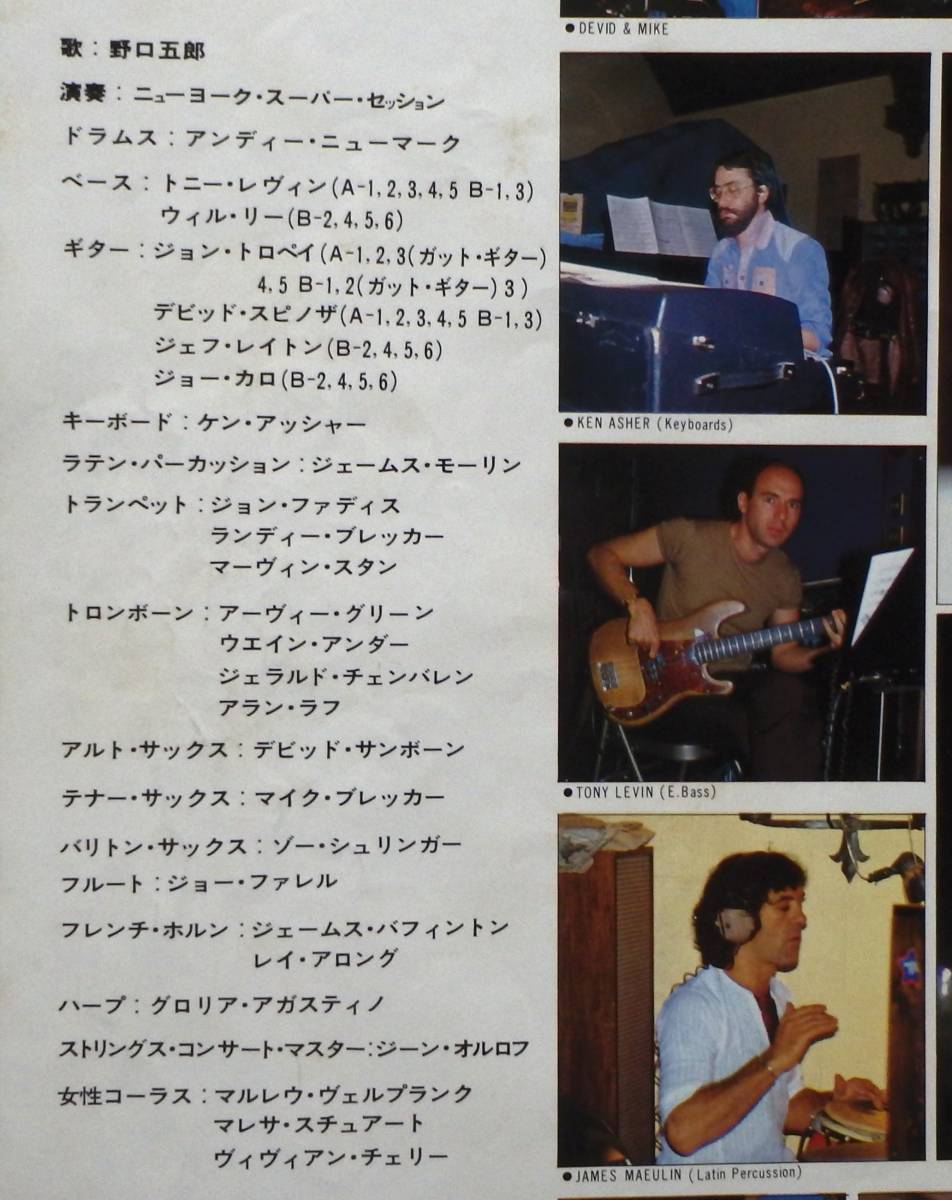 歌：野口五郎
演奏：ニューヨーク・スーパー・セッション
ドラムス：アンディー・ニューマーク
ベース：トニー・レヴィン(A-1,2,3,4,5 B-1,3)
ウィル・リー(B-2,4,5,6)
ギター：ジョン・トロペイ(A-1,2,3(ガット・ギター)
4,5 B-1,2(ガット・ギター)3)
デビッド・スピノザ(A-1,2,3,4,5 B-1,3)
ジェフ・レイトン(B-2,4,5,6)
ジョー・カロ(B-2,4,5,6)
キーボード：ケン・アッシャー
ラテン・パーカッション：ジェームス・モーリン
トランペット：ジョン・ファディス
ランディー・ブレッカー
マーヴィン・スタン
トロンボーン：アーヴィー・グリーン
ウエイン・アンダー
ジェラルド・チェンバレン
アラン・ラフ
アルト・サックス：デビッド・サンボーン
テナー・サックス：マイク・ブレッカー
バリトン・サックス：ゾー・シュリンガー
フルート：ジョー・ファレル
フレンチ・ホルン：ジェームス・バフィントン
レイ・アロング
ハープ：グロリア・アガスティノ
ストリングス・コンサート・マスター：ジーン・オルロフ
女性コーラス：マルレウ・ヴェルプランク
マレサ・スチュアート
ヴィヴィアン・チェリー
●DEVID & MIKE
●KEN ASHER (Keyboards)
●TONY LEVIN (E.Bass)
●JAMES MAEULIN (Latin Percussion)